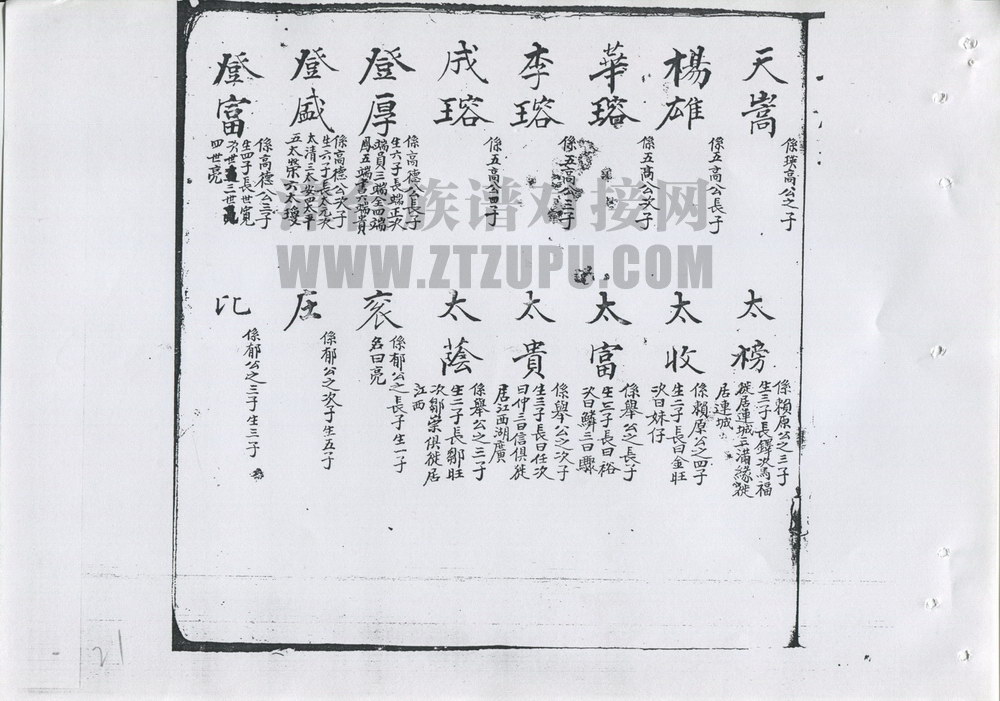 天嵩
係瑛高公之子
楊雄
係五高公長子
華瑢
係五高公次子
李瑢
係五高公三子
成瑢
係五高公四子
登厚
係高德公長子
生六子長端正次
端員三端全四端
鳳五端書六端貴
登盛
係高德公次子
生六子長太元次
太清三太安四太平
五太榮六太瓊
登富
係高德公三子
生四子長世寬
次世 三世
四世亮
太榜
係賴原公之三子
生三子長鐸次馬福
徙居連城三滿緣徙
居連城
太收
係賴原公之四子
生二子長曰金旺
次曰妹仔
太富
係舉公之長子
生三子長曰裕
次曰鱗三曰驟
太貴
係舉公之次子
生三子長曰任次
曰仲三曰信俱徙
居江西湖廣
太蔭
係舉公之三子
生二子長鄒旺
次鄒崇俱徙居
江西
袞
係郁公之長子生一子
名曰亮
庄
係郁公之次子生五子
比
係郁公之三子生三子
族谱对接网
WWW.ZTZUPU.COM
21